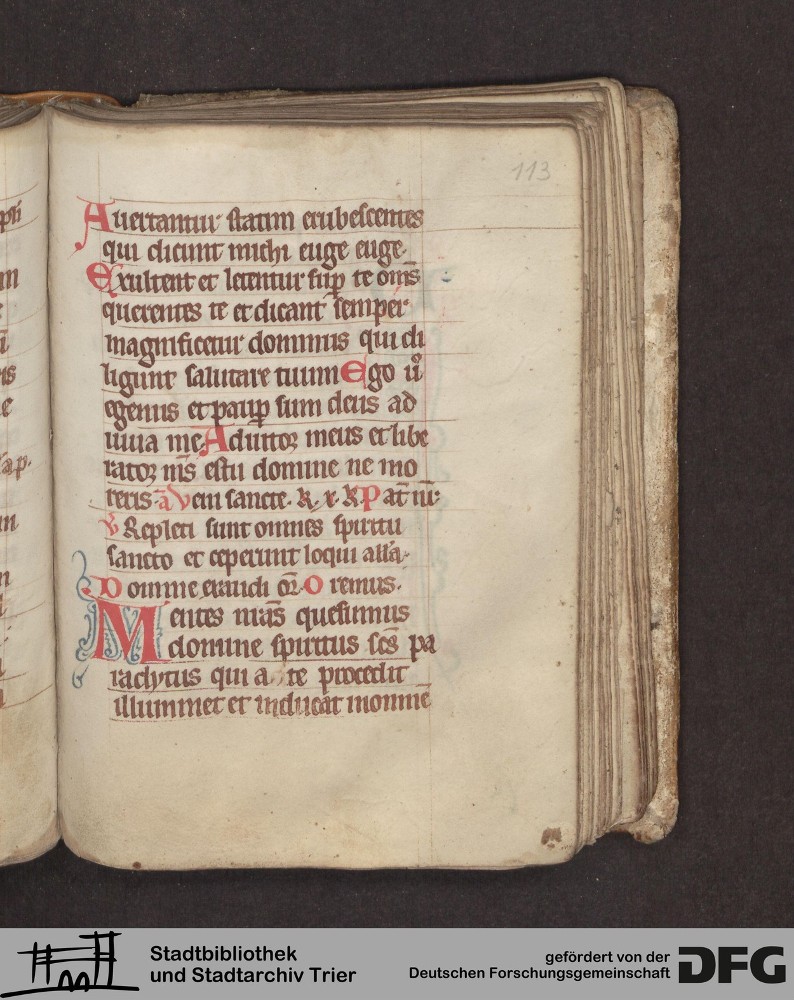 113
Auertantur statim erubescentes
qui dicunt michi euge euge.
Exultent et letentur sup̄ te om̄s
querentes te et dicant semper
magnificetur dominus qui di
ligunt salutare tuum Ego u͛o
egenus et paup̄ sum deus ad
iuua me. Adiutoꝛ meus et libe
ratoꝛ ms̄ estu domine ne mo
reris. a Veni sancte. k. x. k. Pat̄ nr̄:
v Repleti sunt omnes spiritu
sancto et ceperunt loqui all'a.
Domine exaudi or̄. Oremus.
Mentes nr̄as quesumus
domine spiritus sc̄s pa
raclytus qui a te procedit
illuminet et inducat in omnē
Stadtbibliothek
und Stadtarchiv Trier
gefördert von der
Deutschen Forschungsgemeinschaft
DFG